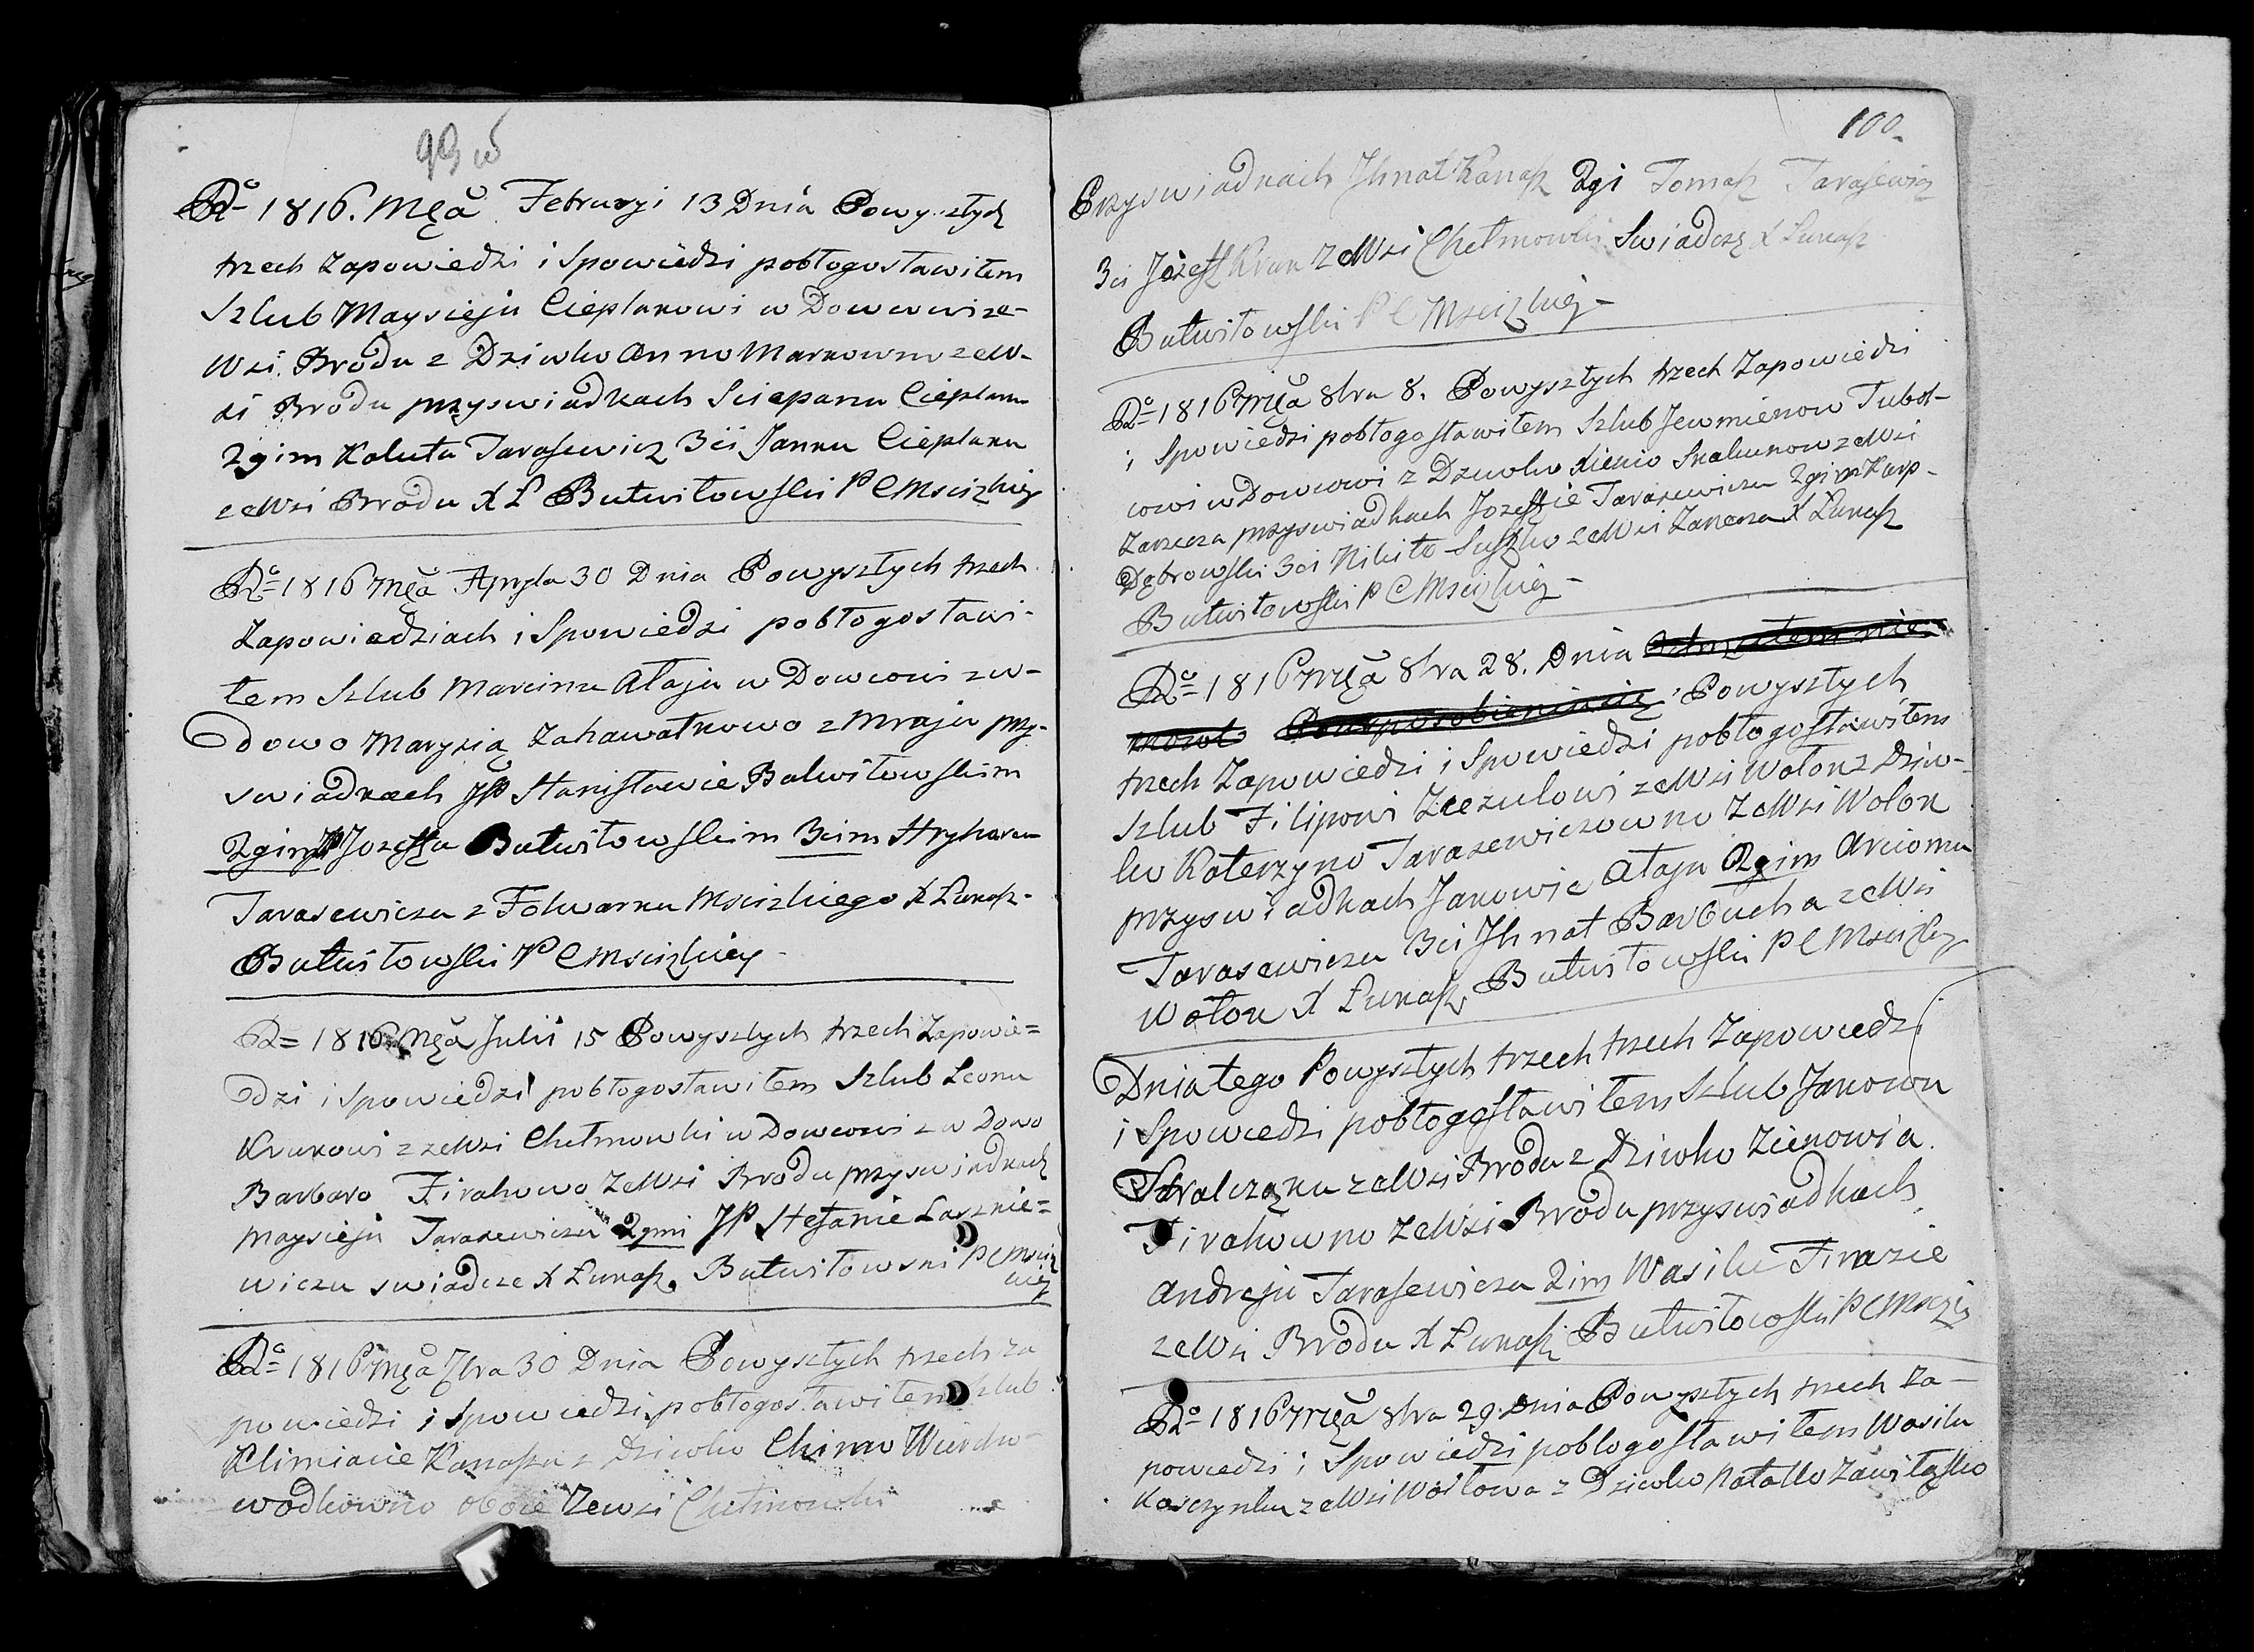 Rº 1816. Mca Februaryi 13 Dnia Powyszłych
trzech Zapowiedzi i Spowiedzi pobłogosławiłem
Szlub Maysieju Cieplakowi w Dowcowi ze-
Wsi Brodu z Dziwko Anno Markowno ze W-
si Brodu przyswiadkach Sciepanu Cieplaku
2gim Kaluta Tarasewicz 3ci Janku Cieplaku
ze Wsi Brodu X Ł Butwiłowski P C Mscizkiej
Rº 1816 Mca Apryla 30 Dnia Powyszłych trzech
Zapowiedziach i Spowiedzi pobłogosławi-
łem Szlub Marcinu Ałaju w Dowcowi z w-
dowo Marysią Zahawalkowo z Mraju przy-
swiadkach JP Stanisławie Butwiłowskim
2gim JP Jozefu Butwiłowskim 3cim Hryhoru
Tarasewiczu z Folwarku Mscizkiego X Łukasz
Butwiłowski P C Mscizkiey
R= 1816 Mca Julii 15 Powyszłych trzech Zapowie=
dzi i Spowiedzi pobłogosławiłem Szlub Leonu
Krukowi z ze Wsi Chełmowki w Dowcowi z w Dowo
Barbaro Firahowo ze Wsi Brodu przyswiadkach
Maysieju Tarasewiczu 2gmi JP Stefanie Łasznie=
wiczu swiadcze X Łukasz Butwiłowski P C Msciz
kiej
Rº 1816 Mca 7bra 30 Dnia Powyszłych trzech Za
powiedzi i Spowiedzi pobłogosławiłem Szlub
Klimiacie Kanaszu z Dziwko Chimo
wodkowno oboie Zewsi Chełmowki
100
Przyswiadkach Jhnat Kanasz 2gi Tomasz Tarasewicz
3ci Jozef Kruk ze Wsi Chełmowki Swiadczę X Łukasz
Butwiłowski P C Mscizkiej
Rº 1816 Mca 8bra 8. Powyszłych trzech Zapowiedzi
i Spowiedzi pobłogosławiłem Szlub Jewmienow
cowi w Dowcowi z Dziwko Xienio ze Wsi
Zarzecza przyswiadkach Jozefie Tarasewiczu 2gim Karp-
Dąbrowski 3ci Nikito Suszko ze Wsi Zarzecza X Łukasz
Butwiłowski P C Mscizkiej
Rº 1816 Mca 8bra 28. Dnia
Powyszłych
trzech Zapowiedzi i Spowiedzi pobłogosławiłem
Szlub Filipowi Ziezulowi ze Wsi Wołok z Dziw-
ko Katerzyno Tarasewiczowno ze Wsi Wołok
przyswiadkach Janowie Ałaju 2gim Arciomu
Tarasewiczu 3ci Jhnat Barbucha ze Wsi
Wołok X Łukasz Butwiłowski P C Mscizkiej
Dnia tego Powyszłych trzech trzech Zapowiedzi
i Spowiedzi pobłogosławiłem Szlub Janowu
Skralczaku ze Wsi Brodu z Dziwko Zienowia
Firahowno ze Wsi Brodu przyswiadkach
Andreju Tarasewiczu 2im Wasilu Firazie
ze Wsi Brodu X Łukasz Butwiłowski P C Mscizkiej
Rº 1816 Mca 8bra 29 Dnia Powyszłych trzech Za-
powiedzi i Spowiedzi pobłogosławiłem Wasilu
Kasczynku ze Wsi z Dziwko Natallo